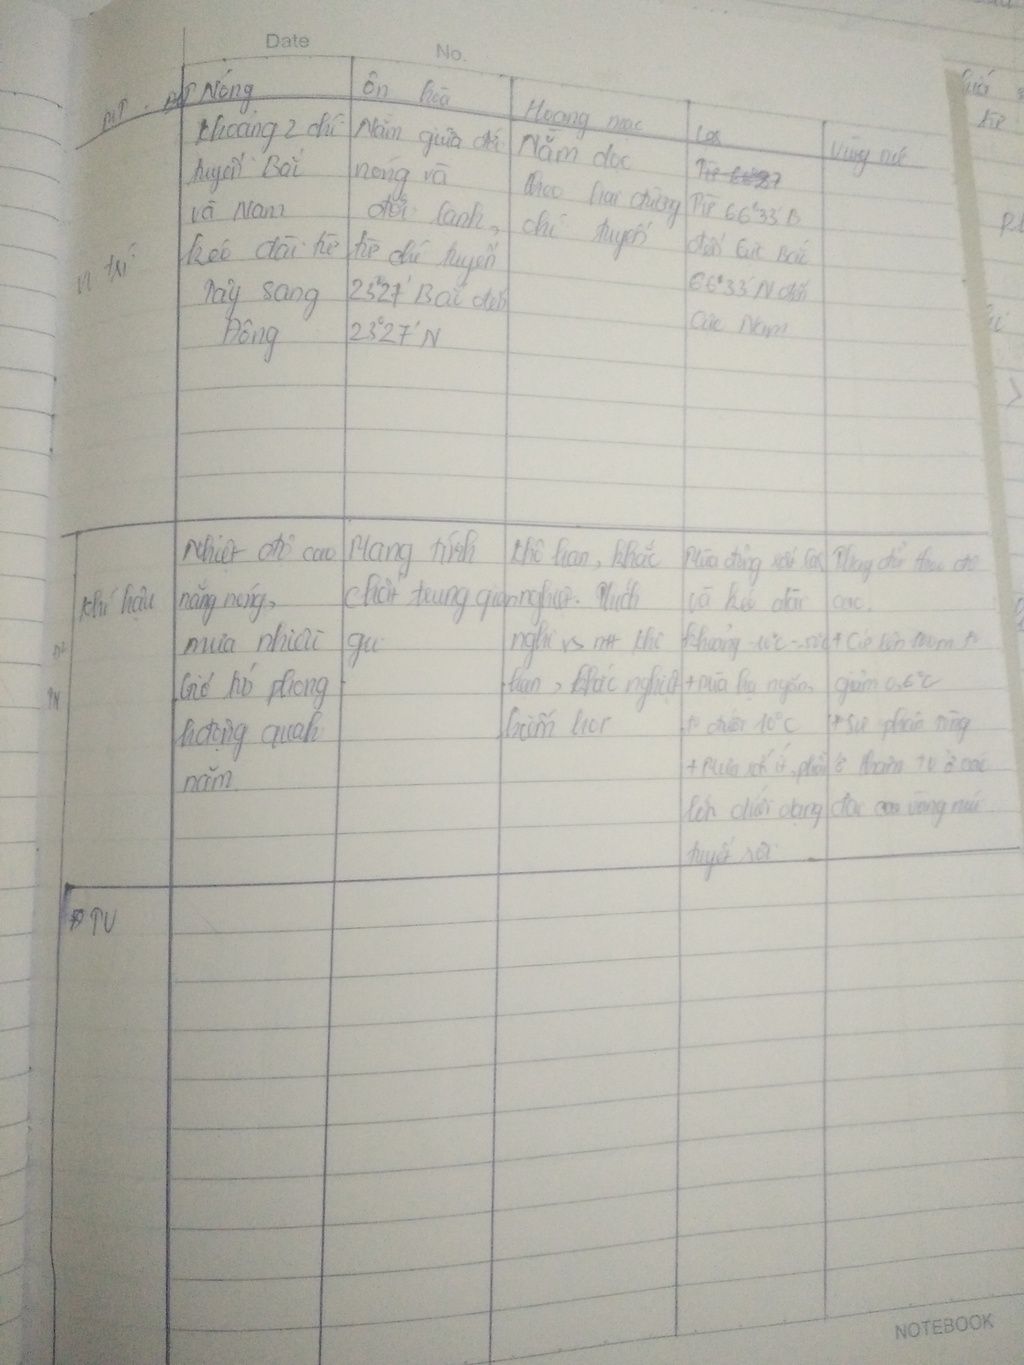 Date
No.
MT
Nóng
Ôn hòa
Hoang mạc
Vùng núi
khoảng 2 chí
tuyến Bắc
và Nam
kéo dài từ
Tây sang
Đông
Nằm giữa đới
nóng và
đới lạnh,
từ chí tuyến
23°27' Bắc đến
23°27' N
Nằm dọc
theo hai đường
chí tuyến
Từ 66°33' B
đến Cực Bắc
66°33' N đến
Cực Nam
trí
Khí hậu
Nhiệt độ cao
nắng nóng,
mưa nhiều
Gió
phong
quanh
năm.
Mang tính
chất trung gian
khô hạn, khắc
nghiệt. Thích
nghi vs mt khô
hạn, khắc nghiệt
Mùa đông rất lạnh
và kéo dài
khoảng -10°C -50°C
+ mùa hạ ngắn,
t° dưới 10°C
+ Mưa rất ít, phần
lớn dưới dạng
tuyết rơi
Thay đổi theo độ
cao.
+ Cứ lên 100m t°
giảm 0,6°C
+ Sự phân tầng
TV ở các
vùng núi
TV
NOTEBOOK